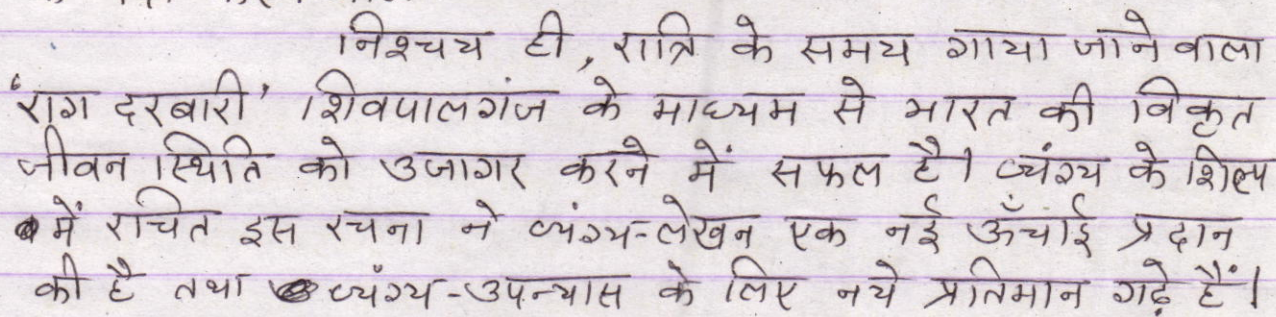 निश्चय ही, रात्रि के समय गाया जाने वाला
'राग दरबारी' शिवपालगंज के माध्यम से भारत की विकृत
जीवन स्थिति को उजागर करने में सफल है। व्यंग्य के शिल्प
में रचित इस रचना ने व्यंग्य-लेखन एक नई ऊँचाई प्रदान
की है तथा व्यंग्य-उपन्यास के लिए नये प्रतिमान गढ़े हैं।